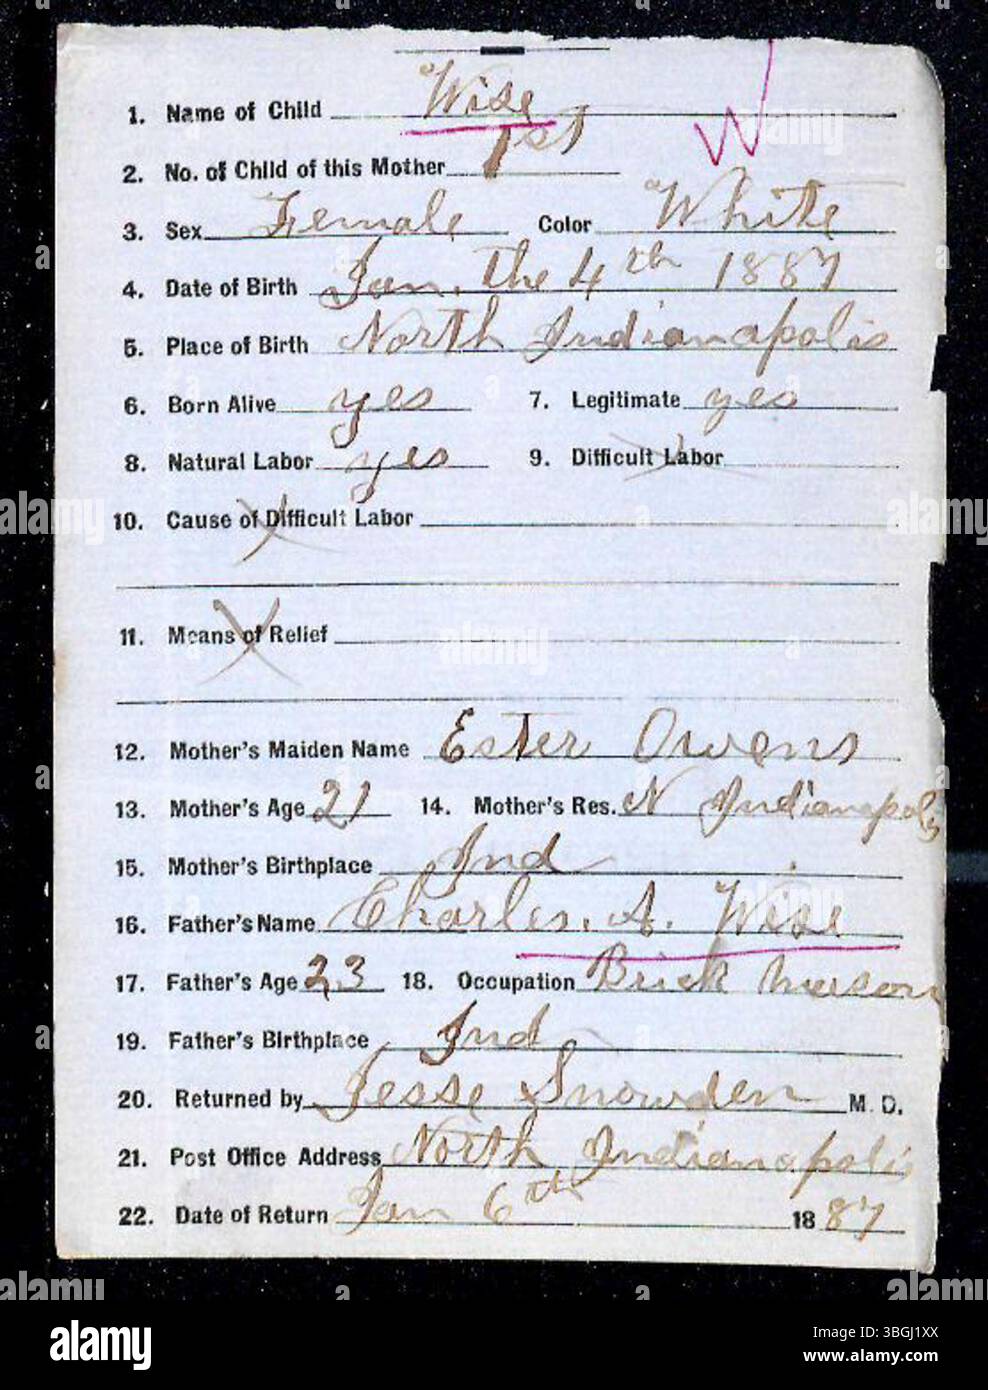 1. Name of Child Wise
W
2. No. of Child of this Mother 1st
3. Sex Female Color White
4. Date of Birth Jan. the 4th 1887
5. Place of Birth North Indianapolis
6. Born Alive yes 7. Legitimate yes
8. Natural Labor yes 9. Difficult Labor
10. Cause of Difficult Labor
11. Means of Relief
12. Mother's Maiden Name Ester Owens
13. Mother's Age 21 14. Mother's Res. N Indianapolis
15. Mother's Birthplace Ind
16. Father's Name Charles. A. Wise
17. Father's Age 23 18. Occupation Brick
19. Father's Birthplace Ind
20. Returned by Jesse Snowden M. D.
21. Post Office Address North Indianapolis
22. Date of Return Jan 6th 1887
alamy
Image ID: 3BGJ1XX
www.alamy.com